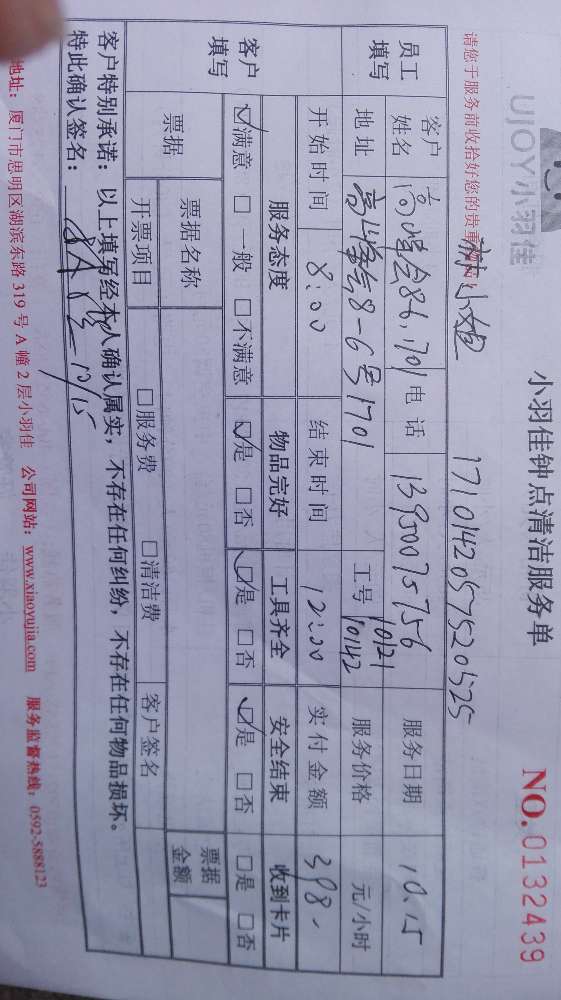 UJOY小羽佳
小羽佳钟点清洁服务单
NO. 0132439
请您于服务前收拾好您的贵重物品!
小姐 17101420575205​25
员工填写 客户姓名 86,1701 电话 13950075756 服务日期 10.15
地址 8-6号1701 工号 10121 10142 服务价格 元/小时
开始时间 8:00 结束时间 12:00 实付金额 398-
客户填写 服务态度 物品完好 工具齐全 安全结束 收到卡片
☑满意 □一般 □不满意 ☑是 □否 ☑是 □否 ☑是 □否 □是 □否
票据 票据名称 票据金额
开票项目 □服务费 □清洁费 客户签名
客户特别承诺:以上填写经本人确认属实,不存在任何纠纷,不存在任何物品损坏。
特此确认签名: 10/15
地址:厦门市思明区湖滨东路319号A幢2层小羽佳 公司网站:www.xiaoyujia.com 服务监督热线:0592-5888123